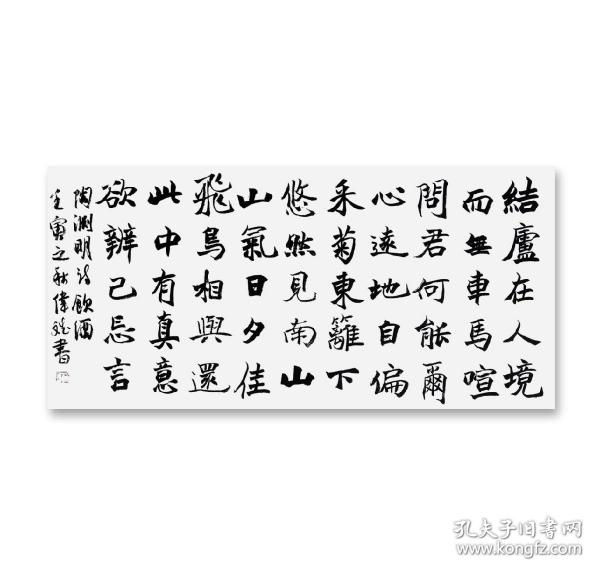 結廬在人境
而無車馬喧
問君何能爾
心遠地自偏
采菊東籬下
悠然見南山
山氣日夕佳
飛鳥相與還
此中有真意
欲辨已忘言
陶淵明詩飲酒
壬寅之秋偉 書
孔夫子旧书网
www.kongfz.com